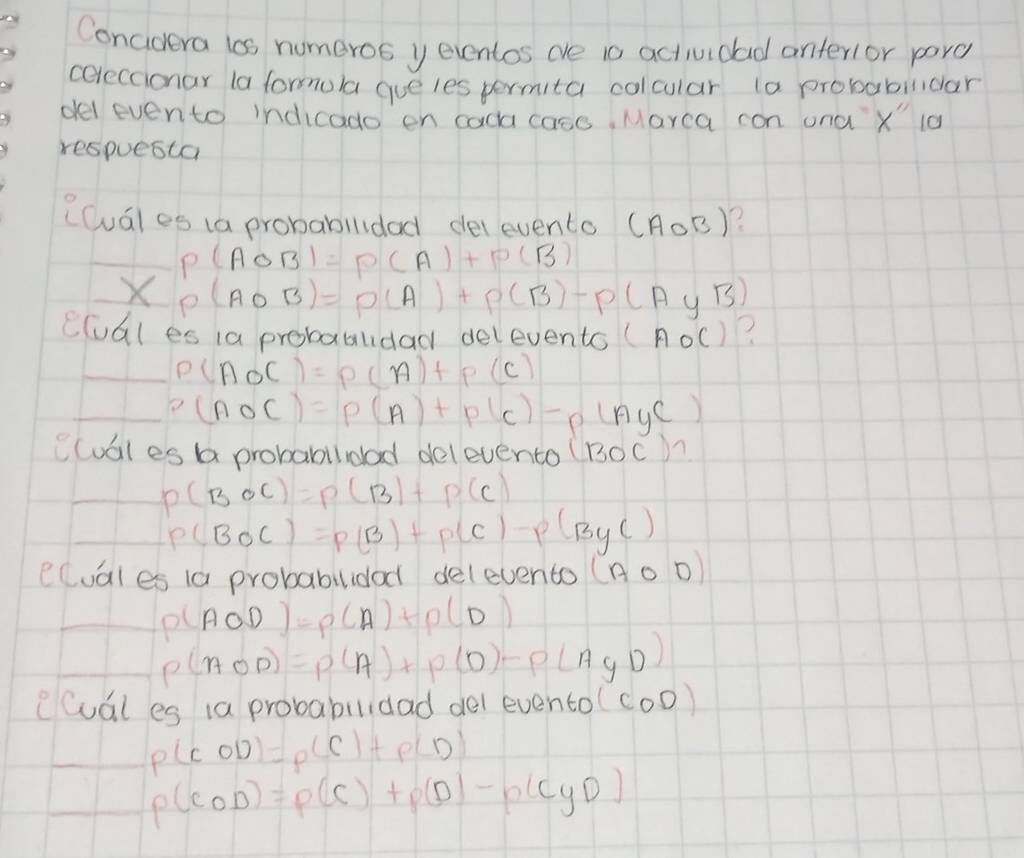 Concidera los numeros y eventos de la actividad anterior para
celeccionar la formula que les permita calcular la probabilidar
del evento indicado en cada caso. Marca con una "X" la
respuesta
¿Cuál es la probabilidad del evento (A o B)?
___ p(A o B) = p(A) + p(B)
_X_ p(A o B) = p(A) + p(B) - p(A y B)
¿Cuál es la probabalidad del evento (A o C)?
___ p(A o C) = p(A) + p(C)
___ p(A o C) = p(A) + p(c) - p(A y C)
¿Cuál es la probabilidad del evento (B o C)?
___ p(B o C) = p(B) + p(C)
___ p(B o C) = p(B) + p(C) - p(B y C)
¿Cuál es la probabilidad del evento (A o D)
___ p(A o D) = p(A) + p(D)
___ p(A o D) = p(A) + p(D) - p(A y D)
¿Cuál es la probabilidad del evento (C o D)
___ p(C o D) = p(C) + p(D)
___ p(C o D) = p(C) + p(D) - p(C y D)